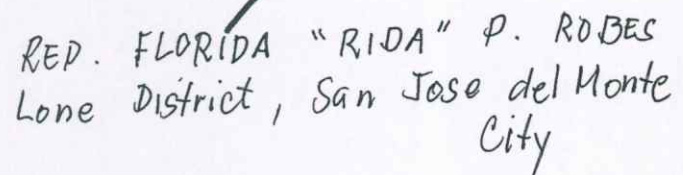 REP. FLORIDA "RIDA" P. ROBES
Lone District, San Jose del Monte
City